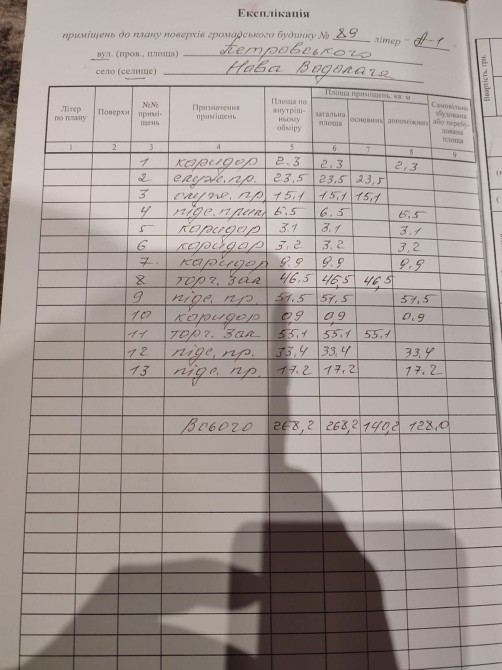 Експлікація
приміщень до плану поверхів громадського будинку № 89 літер "А-1
вул. (пров., площа) Петровського
село (селище) Нова Водолага
Літер по плану Поверхи №№ приміщень Призначення приміщень Площа по внутрішньому обміру Площа приміщень, кв. м загальна площа основних допоміжних Самовільно збудована або перебудована площа
1 2 3 4 5 6 7 8 9
1 коридор 2.3 2.3 2.3
2 служ. пр. 23,5 23,5 23,5
3 служ. пр. 15,1 15,1 15,1
4 підс. прим 6,5 6.5 6,5
5 коридор 3.1 3,1 3.1
6 коридор 3,2 3,2 3,2
7 коридор 9.9 9.9 9.9
8 торг. зал 46,5 46,5 46,5
9 підс. пр. 51,5 51,5 51.5
10 коридор 0,9 0,9 0.9
11 торг. зал 55.1 55.1 55.1
12 підс. пр. 33,4 33,4 33,4
13 підс. пр. 17.2 17.2 17.2
Всього 268,2 268,2 140,2 128,0